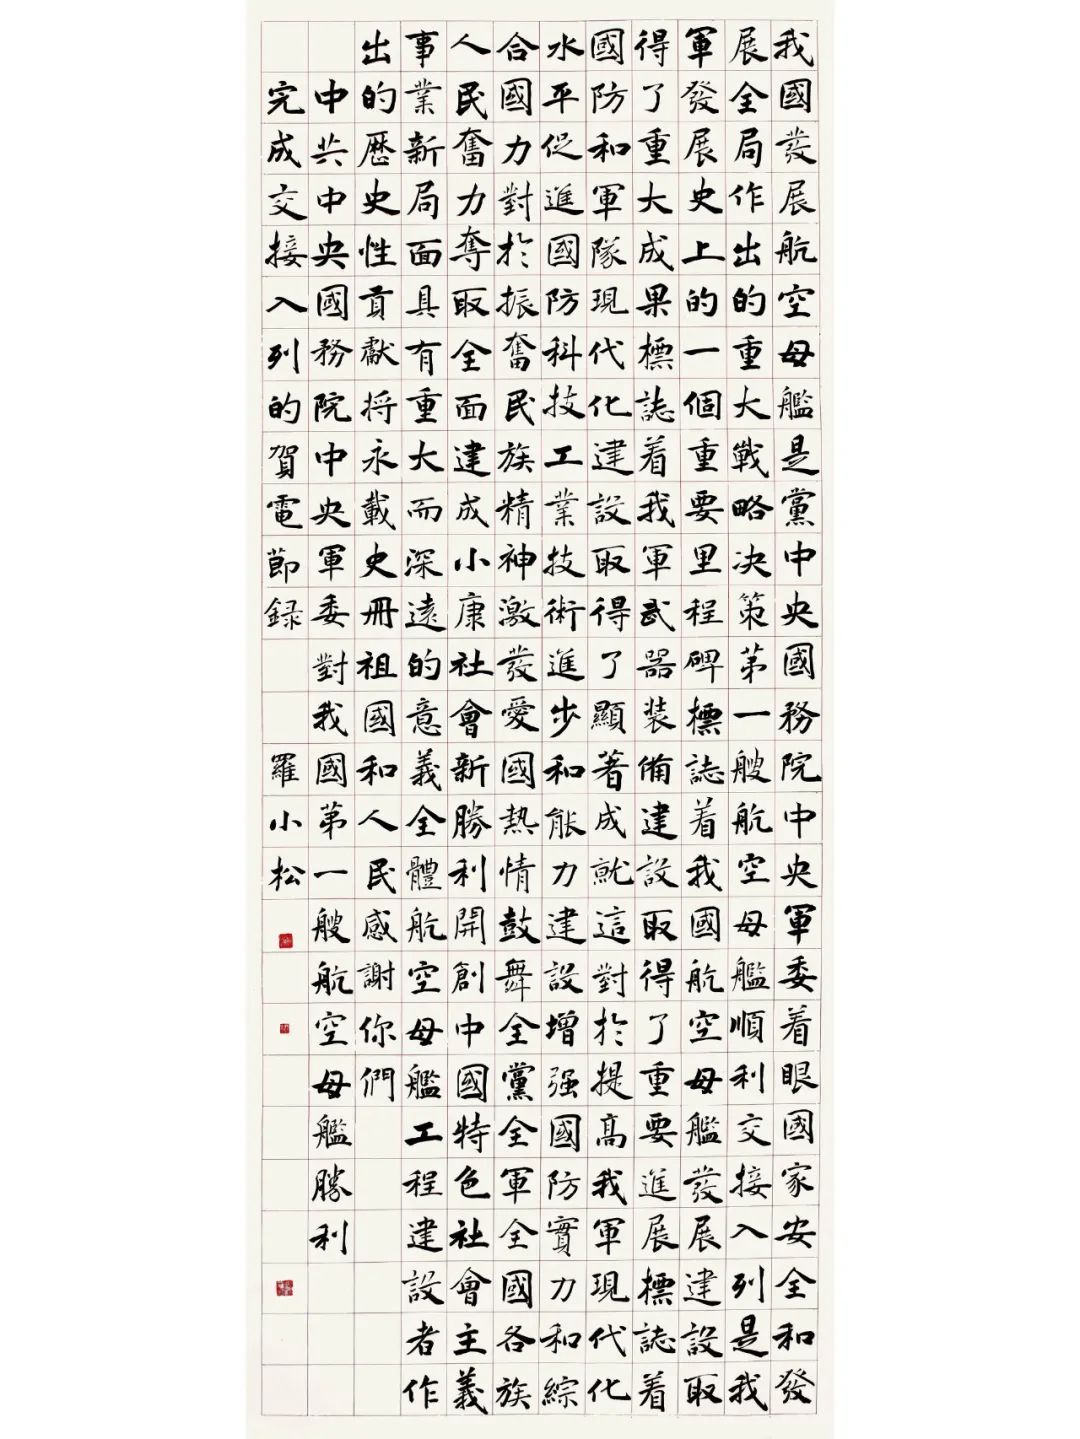 我國發展航空母艦是黨中央國務院中央軍委着眼國家安全和發
展全局作出的重大戰略决策第一艘航空母艦順利交接入列是我
軍發展史上的一個重要里程碑標誌着我國航空母艦發展建設取
得了重大成果標誌着我軍武器裝備建設取得了重要進展標誌着
國防和軍隊現代化建設取得了顯著成就這對於提高我軍現代化
水平促進國防科技工業技術進步和能力建設增强國防實力和綜
合國力對於振奮民族精神激發愛國熱情鼓舞全黨全軍全國各族
人民奮力奪取全面建成小康社會新勝利開創中國特色社會主義
事業新局面具有重大而深遠的意義全體航空母艦工程建設者作
出的歷史性貢獻将永載史冊祖國和人民感謝你們
中共中央國務院中央軍委對我國第一艘航空母艦勝利
完成交接入列的賀電節録 羅小松